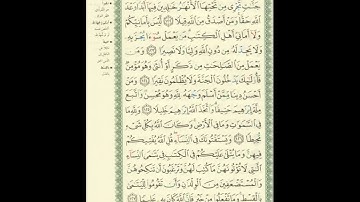 جَنَّٰتٍ تَجْرِى مِن تَحْتِهَا ٱلْأَنْهَٰرُ خَٰلِدِينَ فِيهَآ أَبَدًا وَعْدَ
ٱللَّهِ حَقًّا وَمَنْ أَصْدَقُ مِنَ ٱللَّهِ قِيلًا ﴿١٢٢﴾ لَّيْسَ بِأَمَانِيِّكُمْ
وَلَآ أَمَانِىِّ أَهْلِ ٱلْكِتَٰبِ مَن يَعْمَلْ سُوٓءًا يُجْزَ بِهِۦ
وَلَا يَجِدْ لَهُۥ مِن دُونِ ٱللَّهِ وَلِيًّا وَلَا نَصِيرًا ﴿١٢٣﴾ وَمَن
يَعْمَلْ مِنَ ٱلصَّٰلِحَٰتِ مِن ذَكَرٍ أَوْ أُنثَىٰ وَهُوَ مُؤْمِنٌ
فَأُو۟لَٰٓئِكَ يَدْخُلُونَ ٱلْجَنَّةَ وَلَا يُظْلَمُونَ نَقِيرًا ﴿١٢٤﴾ وَمَنْ
أَحْسَنُ دِينًا مِّمَّنْ أَسْلَمَ وَجْهَهُۥ لِلَّهِ وَهُوَ مُحْسِنٌ وَٱتَّبَعَ
مِلَّةَ إِبْرَٰهِيمَ حَنِيفًا وَٱتَّخَذَ ٱللَّهُ إِبْرَٰهِيمَ خَلِيلًا ﴿١٢٥﴾ وَلِلَّهِ مَا
فِى ٱلسَّمَٰوَٰتِ وَمَا فِى ٱلْأَرْضِ وَكَانَ ٱللَّهُ بِكُلِّ شَىْءٍ
مُّحِيطًا ﴿١٢٦﴾ وَيَسْتَفْتُونَكَ فِى ٱلنِّسَآءِ قُلِ ٱللَّهُ يُفْتِيكُمْ
فِيهِنَّ وَمَا يُتْلَىٰ عَلَيْكُمْ فِى ٱلْكِتَٰبِ فِى يَتَٰمَى ٱلنِّسَآءِ
ٱلَّٰتِى لَا تُؤْتُونَهُنَّ مَا كُتِبَ لَهُنَّ وَتَرْغَبُونَ أَن تَنكِحُوهُنَّ
وَٱلْمُسْتَضْعَفِينَ مِنَ ٱلْوِلْدَٰنِ وَأَن تَقُومُوا۟ لِلْيَتَٰمَىٰ
بِٱلْقِسْطِ وَمَا تَفْعَلُوا۟ مِنْ خَيْرٍ فَإِنَّ ٱللَّهَ كَانَ بِهِۦ عَلِيمًا ﴿١٢٧﴾